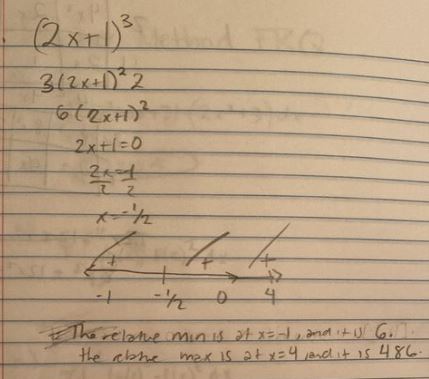 (2x+1)³
3(2x+1)² 2
6(2x+1)²
2x+1=0
2x=-1
2 2
x=-1/2
+ + +
-1 -1/2 0 4
The relative min is at x=-1, and it is 6.
the relative max is at x=4, and it is 486.